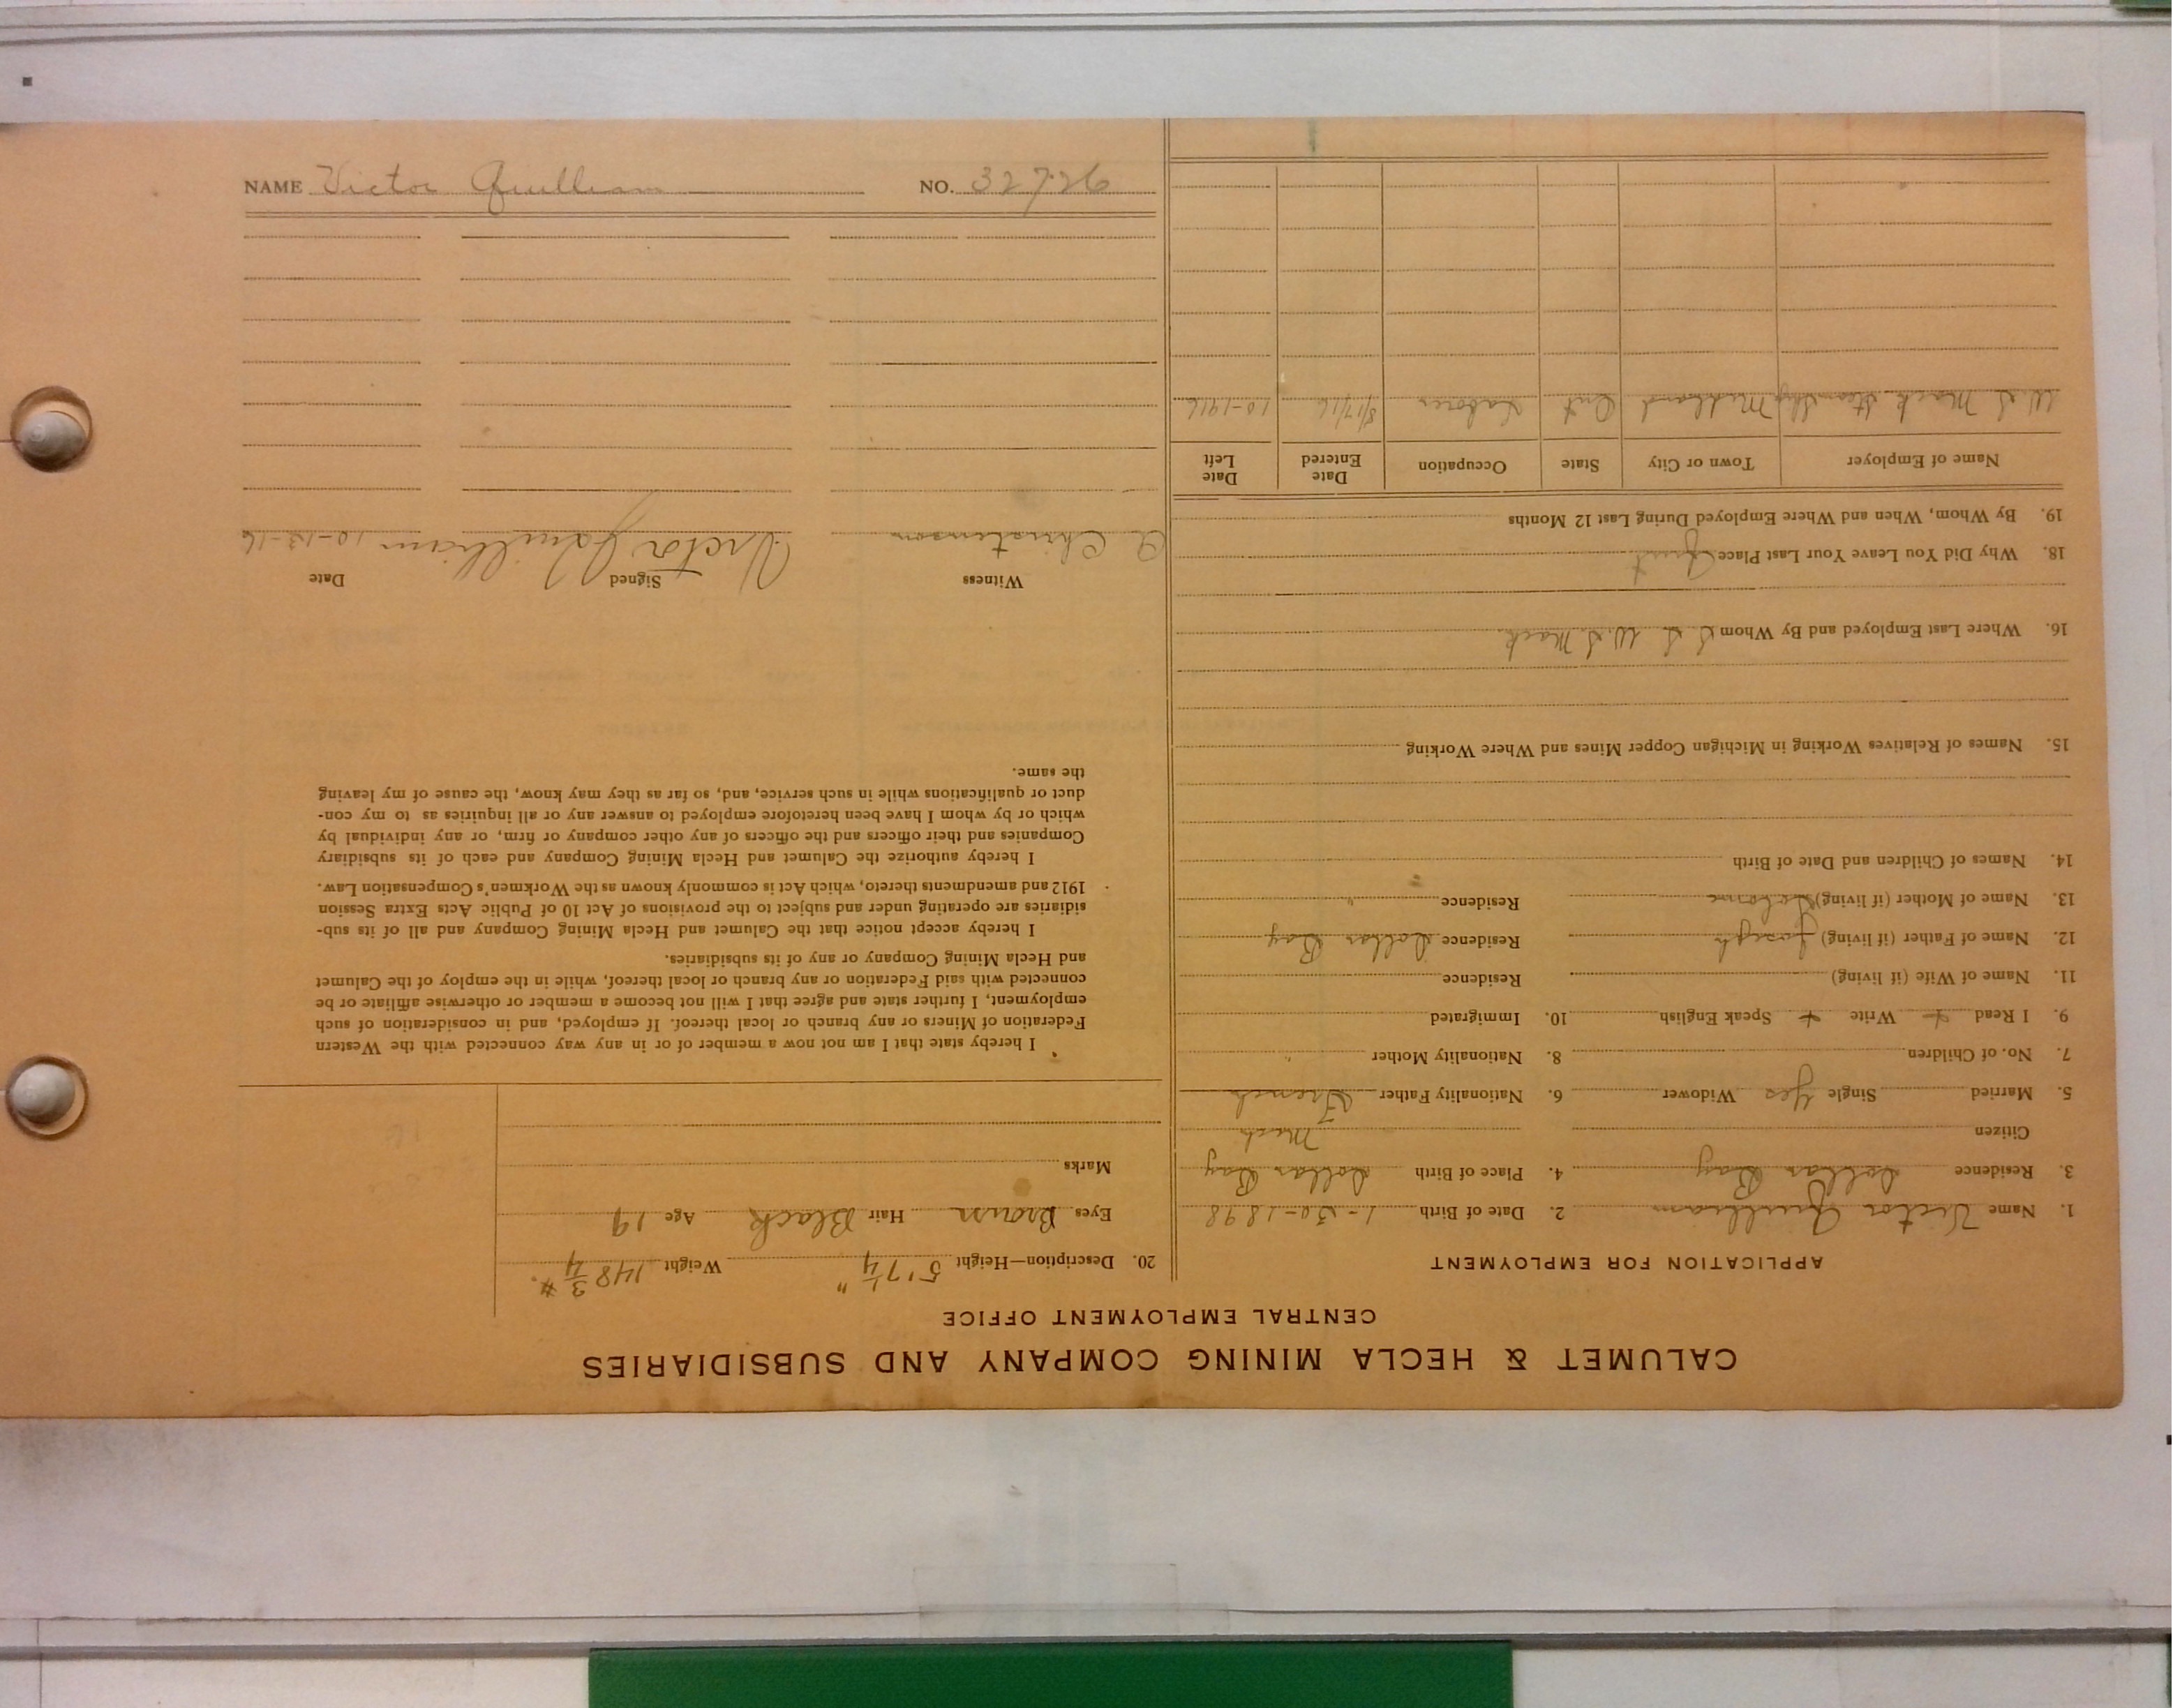 NAME Victor Quilliam NO. 32726
CALUMET & HECLA MINING COMPANY AND SUBSIDIARIES
CENTRAL EMPLOYMENT OFFICE
APPLICATION FOR EMPLOYMENT
1. Name Victor Quilliam 2. Date of Birth 1-30-1898
3. Residence Dollar Bay 4. Place of Birth Dollar Bay
Citizen Mich
5. Married Single yes Widower 6. Nationality Father French
7. No. of Children 8. Nationality Mother "
9. I Read + Write + Speak English 10. Immigrated
11. Name of Wife (if living) Residence
12. Name of Father (if living) Joseph Residence Dollar Bay
13. Name of Mother (if living) Residence "
14. Names of Children and Date of Birth
15. Names of Relatives Working in Michigan Copper Mines and Where Working
16. Where Last Employed and By Whom S. S. W. S. Mack
18. Why Did You Leave Your Last Place Quit
19. By Whom, When and Where Employed During Last 12 Months
Name of Employer Town or City State Occupation Date Entered Date Left
W. S. Mack Steam Ship Midland Ont Laborer 8/17/16 10-1916
20. Description—Height 5' 7 1/4" Weight 148 3/4 #.
Eyes Brown Hair Black Age 19
Marks
I hereby state that I am not now a member of or in any way connected with the Western
Federation of Miners or any branch or local thereof. If employed, and in consideration of such
employment, I further state and agree that I will not become a member or otherwise affiliate or be
connected with said Federation or any branch or local thereof, while in the employ of the Calumet
and Hecla Mining Company or any of its subsidiaries.
I hereby accept notice that the Calumet and Hecla Mining Company and all of its sub-
sidiaries are operating under and subject to the provisions of Act 10 of Public Acts Extra Session
1912 and amendments thereto, which Act is commonly known as the Workmen's Compensation Law.
I hereby authorize the Calumet and Hecla Mining Company and each of its subsidiary
Companies and their officers and the officers of any other company or firm, or any individual by
which or by whom I have been heretofore employed to answer any or all inquiries as to my con-
duct or qualifications while in such service, and, so far as they may know, the cause of my leaving
the same.
Witness Signed Date
A Christenson Victor Quilliam 10-13-16